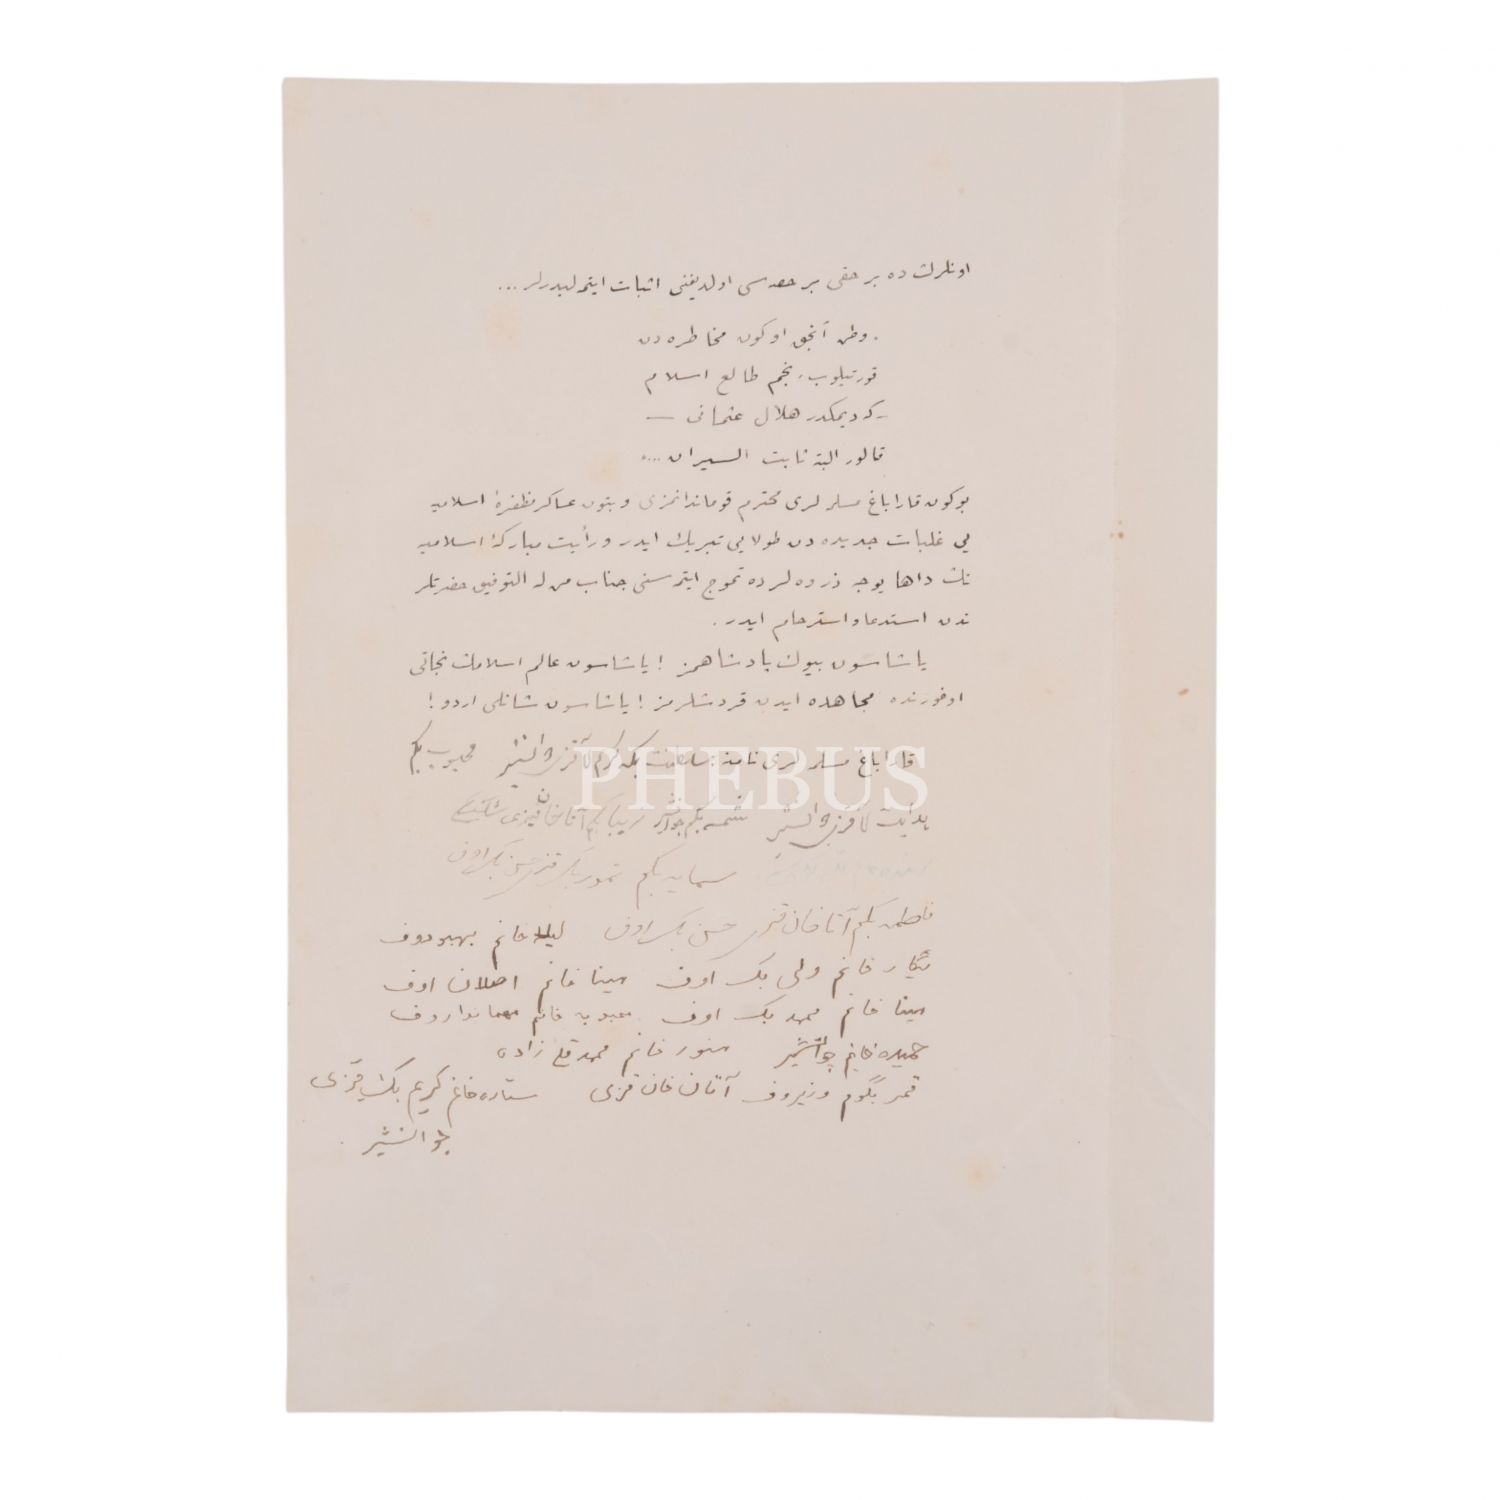 اونلرك ده بر حقی بر حصه سی اولدیغنی اثبات ایتمه لیدرلر...
وطن آنجق اوكون مخاطره دن
قورتیلوب، نجم طالع اسلام
ـ كه دیمكدر هلال عثمانی ـ
قالور البته ثابت السیران ....
بوكون قاراباغ مسلمه لری محترم قومانداننمزی و بتون عساكر مظفرهٔ اسلامیه
یی غلبات جدیده دن طولایی تبریك ایدر و رأیت مباركهٔ اسلامیه
نك داها یوجه ذروه لرده تموج ایتمه سنی جناب من له التوفیق حضرتلر
ندن استدعا و استرحام ایدر.
یاشاسون بیوك پادشاهمز! یاشاسون عالم اسلامك نجاتی
اوغورنده مجاهده ایدن قرداشلرمز! یاشاسون شانلی اردو!
قاراباغ مسلمه لری نامنه: سلطنت بكم كرم آقا قزی جوانشیر محبوب بكم
هدایت آقا قزی جوانشیر شمسی بكم جوانشیر زیبا بكم آقاخان قیزی
سمایه بكم تمور بك قزی حسن بك اوف
فاطمه بكم آتاخان قزی حسن بك اوف لیلا خانم بهبودوف
نگار خانم ولی بك اوف مینا خانم اصلان اوف
مینا خانم محمد بك اوف محبوبه خانم مهمانداروف
حمیده خانم جوانشیر منور خانم محمد قلی زاده
قمر بگوم وزیروف آتان خان قزی ستاره خانم كریم بك قزی
جوانشیر
PHEBUS